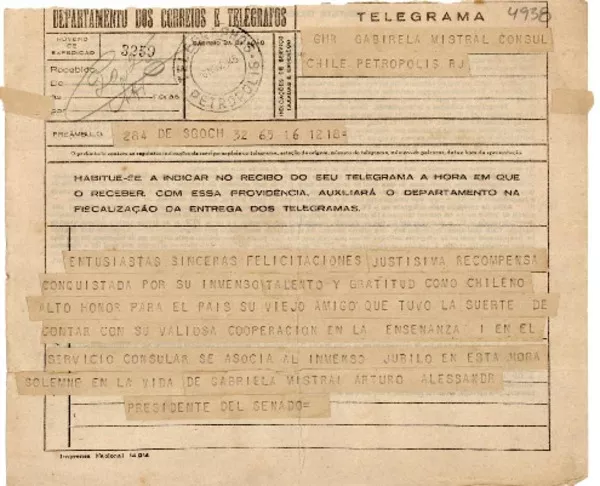 DEPARTAMENTO DOS CORREIOS E TELÉGRAFOS
TELEGRAMA
4938
NÚMERO
DE
EXPEDIÇÃO
3239
GMR GABIRELA MISTRAL CONSUL
CHILE PETROPOLIS RJ
Recebido:
De
às horas
por
PETROPOLIS
INDICAÇÕES DE SERVIÇO
TAXADAS E EVENTUAIS
PREÂMBULO
284 DE SGOCH 32 63 16 1218=
HABITUE-SE A INDICAR NO RECIBO DO SEU TELEGRAMA A HORA EM QUE
O RECEBER. COM ESSA PROVIDÊNCIA, AUXILIARÁ O DEPARTAMENTO NA
FISCALIZAÇÃO DA ENTREGA DOS TELEGRAMAS.
ENTUSIASTAS SINCERAS FELICITACIONES JUSTISIMA RECOMPENSA
CONQUISTADA POR SU INMENSO TALENTO Y GRATITUD COMO CHILENO
ALTO HONOR PARA EL PAIS SU VIEJO AMIGO QUE TUVO LA SUERTE DE
CONTAR CON SU VALIOSA COOPERACION EN LA ENSENANZA I EN EL
SERVICIO CONSULAR SE ASOCIA AL INMENSO JUBILO EN ESTA HORA
SOLEMNE EN LA VIDA DE GABRIELA MISTRAL ARTURO ALESSANDR
PRESIDENTE DEL SENADO=
Imprensa Nacional